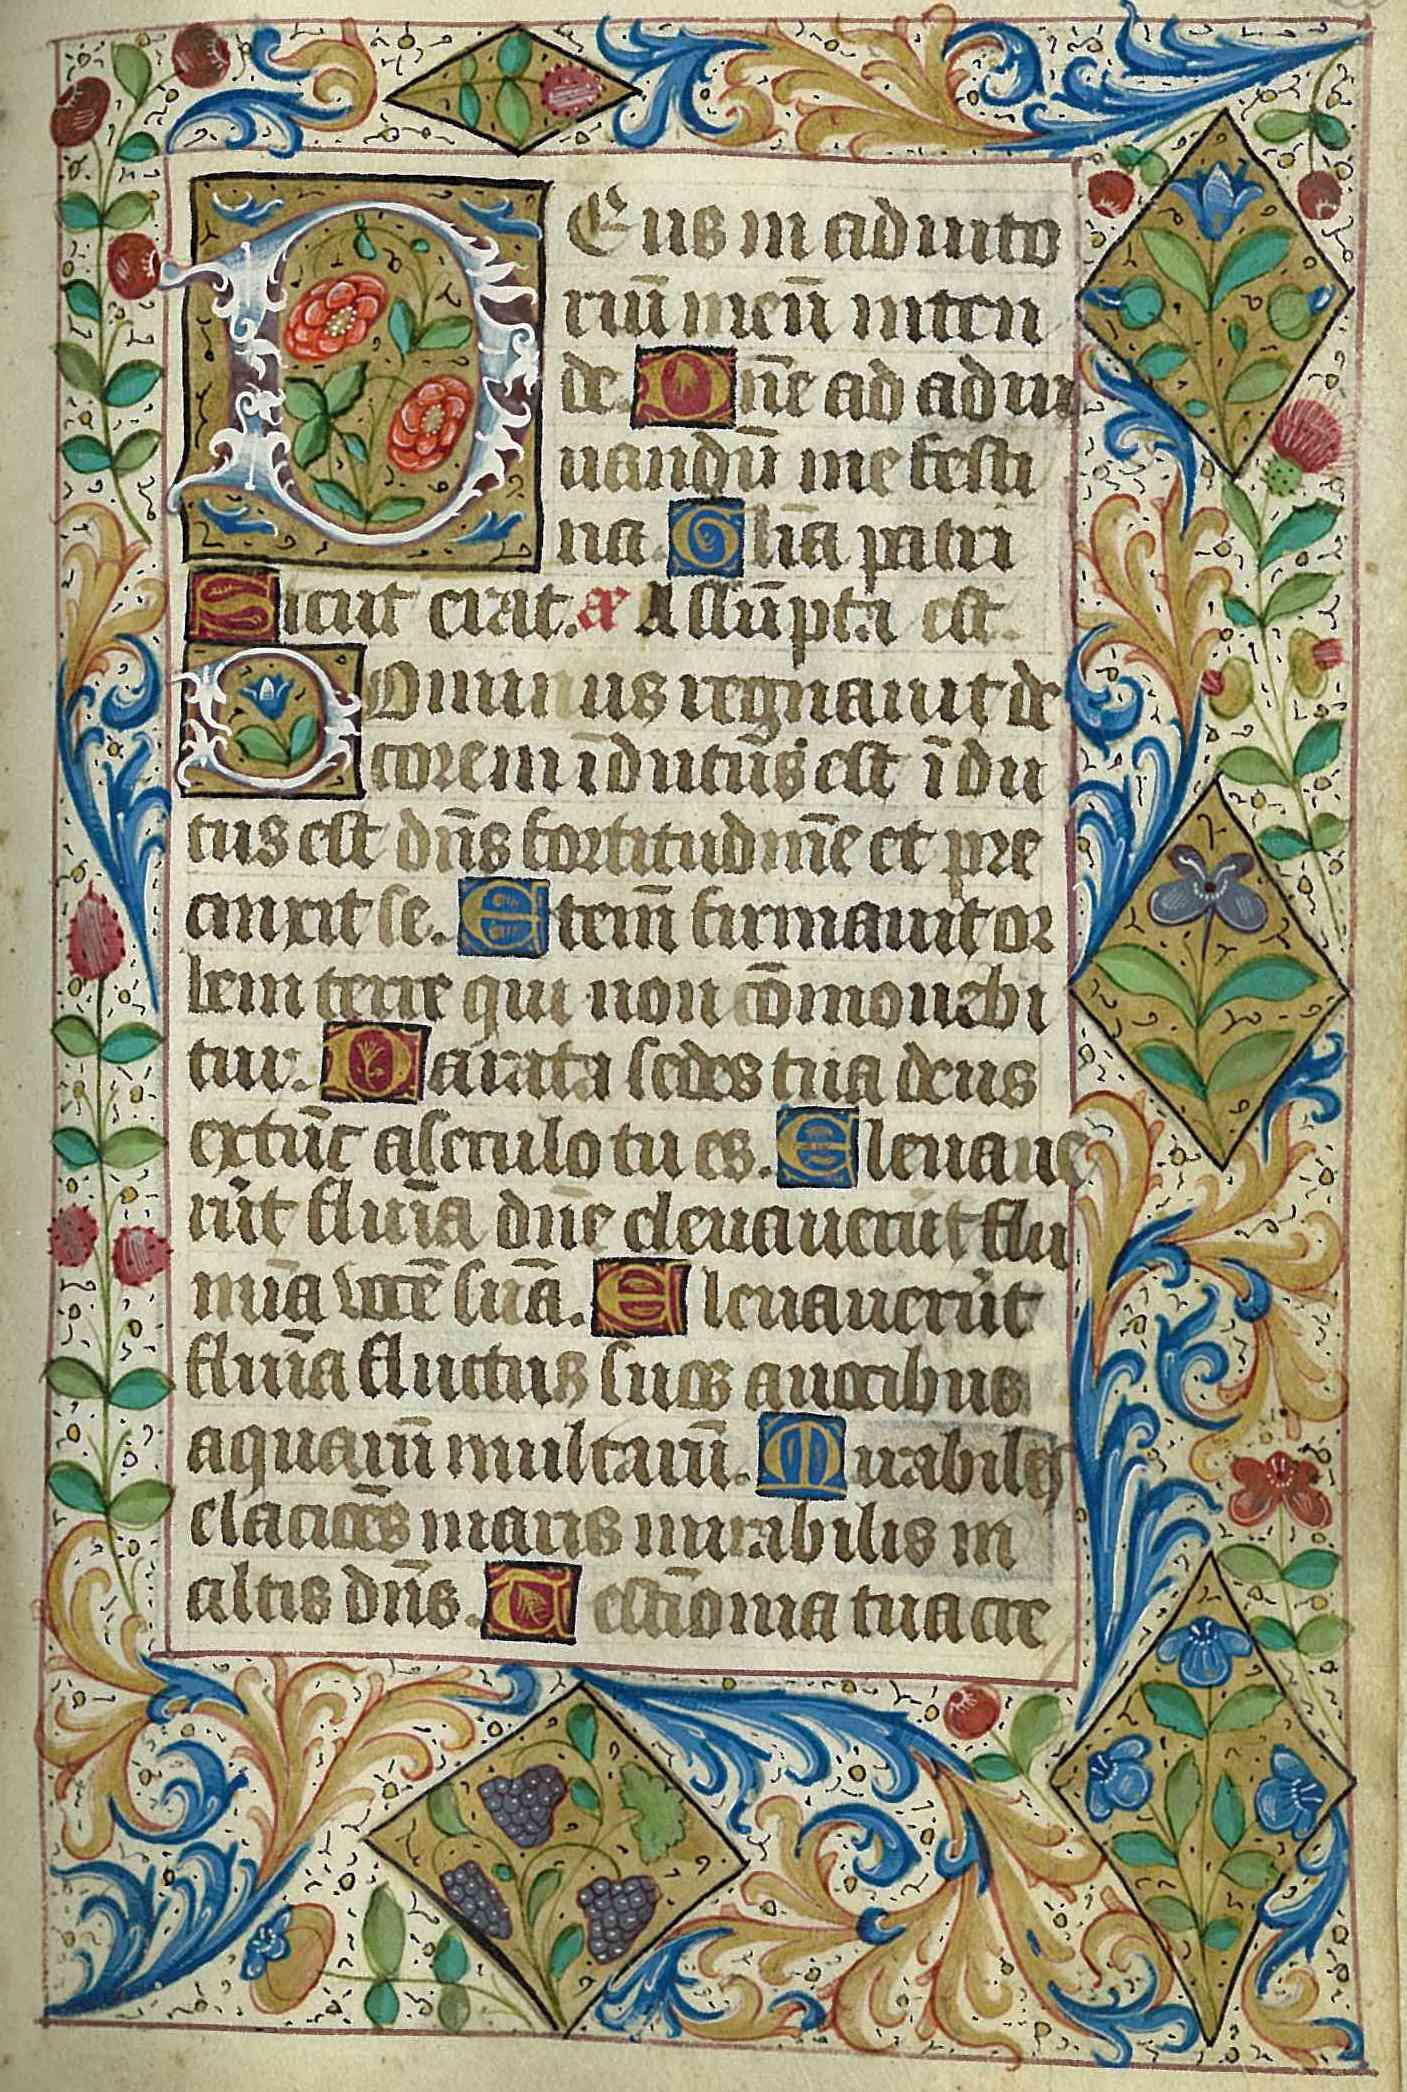 DEus in adiuto
riū meū inten
de. Dn̄e ad adiu
uandū me festi
na. Gl̄ia patri
Sicut erat. a᷎ Assūpta est.
DOminus regnauit de
corem īdutus est īdu
tus est dn̄s fortitudinē et pre
cinxit se. Etem̄ firmauit or
bem terre qui non cōmouebi
tur. Parata sedes tua deus
extūc a seculo tu es. Eleuaue
rūt flūia dn̄e eleuauerūt flu
mīa vocē suā. Eleuauerūt
flūia fluctus suos a uocibus
aquarū multarū. Mirabiles
elacōēs maris mirabilis in
altis dn̄s. Testīonia tua cre